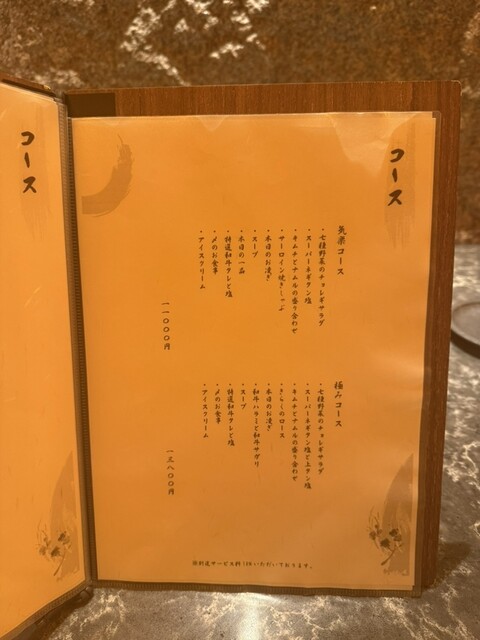 コース
コース
気楽コース
・七種野菜のチョレギサラダ
・スーパーネギタン塩
・キムチとナムルの盛り合わせ
・サーロイン焼きしゃぶ
・本日のお凌ぎ
・スープ
・本日の一品
・特選和牛タレと塩
・〆のお食事
・アイスクリーム
一一〇〇〇円
極みコース
・七種野菜のチョレギサラダ
・スーパーネギタン塩と上タン塩
・キムチとナムルの盛り合わせ
・きらくのロース
・本日のお凌ぎ
・和牛ハラミと和牛サガリ
・スープ
・特選和牛タレと塩
・〆のお食事
・アイスクリーム
一三八〇〇円
※別途サービス料10%いただいております。